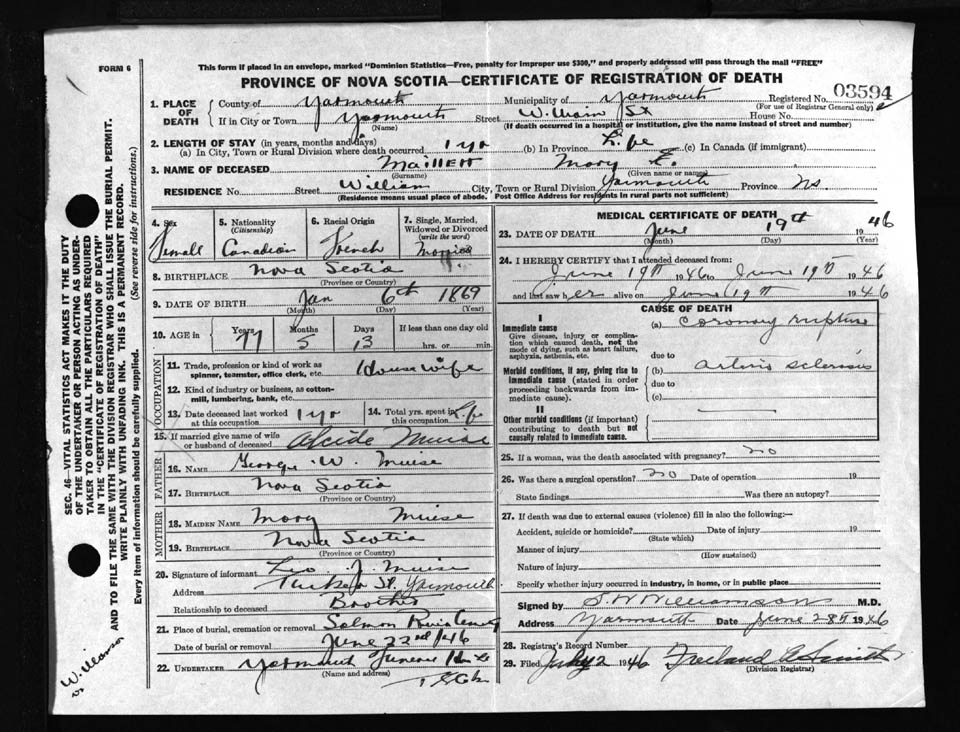 This form if placed in an envelope, marked "Dominion Statistics—Free, penalty for improper use $300," and properly addressed will pass through the mail "FREE"
FORM 6
PROVINCE OF NOVA SCOTIA—CERTIFICATE OF REGISTRATION OF DEATH
03594
1. PLACE OF DEATH { County of Yarmouth Municipality of Yarmouth Registered No. (For use of Registrar General only)
If in City or Town Yarmouth (Name) Street House No.
(If death occurred in a hospital or institution, give the name instead of street and number)
2. LENGTH OF STAY (in years, months and days)
(a) In City, Town or Rural Division where death occurred 1 yr (b) In Province Life (c) In Canada (if immigrant)
3. NAME OF DECEASED Maillett (Surname) Mary E. (Given name or names)
RESIDENCE No. Street William City, Town or Rural Division Yarmouth Province NS.
(Residence means usual place of abode. Post Office Address for residents in rural parts not sufficient)
4. Sex Female
5. Nationality (Citizenship) Canadian
6. Racial Origin French
7. Single, Married, Widowed or Divorced (write the word) Married
8. BIRTHPLACE Nova Scotia
(Province or Country)
9. DATE OF BIRTH Jan 6th 1869
(Month) (Day) (Year)
10. AGE in { Years 77 Months 5 Days 13 If less than one day old hrs. or min.
OCCUPATION
11. Trade, profession or kind of work as spinner, teamster, office clerk, etc. Housewife
12. Kind of industry or business, as cotton-mill, lumbering, bank, etc.
13. Date deceased last worked at this occupation 1 yr 14. Total yrs. spent in this occupation Life
15. If married give name of wife or husband of deceased Alcide Muise
FATHER
16. NAME George W. Muise
17. BIRTHPLACE Nova Scotia
(Province or Country)
MOTHER
18. MAIDEN NAME Mary Muise
19. BIRTHPLACE Nova Scotia
(Province or Country)
20. Signature of informant Leo J. Muise
Address St. Yarmouth
Relationship to deceased Brother
21. Place of burial, cremation or removal Salmon River
Date of burial or removal June 22nd 1946
22. UNDERTAKER Yarmouth Funeral
(Name and address)
MEDICAL CERTIFICATE OF DEATH
23. DATE OF DEATH June 19th 1946
(Month) (Day) (Year)
24. I HEREBY CERTIFY that I attended deceased from:
June 19th 1946 to June 19th 1946
and last saw her alive on June 19th 1946
CAUSE OF DEATH
I
Immediate cause (a) Coronary rupture
Give disease, injury or complication which caused death, not the mode of dying, such as heart failure, asphyxia, asthenia, etc.
due to
Morbid conditions, if any, giving rise to immediate cause (stated in order proceeding backwards from immediate cause). (b) sclerosis
due to
(c)
II
Other morbid conditions (if important) contributing to death but not causally related to immediate cause.
25. If a woman, was the death associated with pregnancy? no
26. Was there a surgical operation? no Date of operation 19
State findings Was there an autopsy?
27. If death was due to external causes (violence) fill in also the following:—
Accident, suicide or homicide? Date of injury 19
(State which)
Manner of injury
(How sustained)
Nature of injury
Specify whether injury occurred in industry, in home, or in public place
Signed by S.W. Williamson M.D.
Address Yarmouth Date June 28th 1946
28. Registrar's Record Number
29. Filed July 2 1946
(Division Registrar)
SEC. 46—VITAL STATISTICS ACT MAKES IT THE DUTY
OF THE UNDERTAKER OR PERSON ACTING AS UNDERTAKER TO OBTAIN ALL THE PARTICULARS REQUIRED
IN THE "CERTIFICATE OF REGISTRATION OF DEATH"
AND TO FILE THE SAME WITH THE DIVISION REGISTRAR WHO SHALL ISSUE THE BURIAL PERMIT.
WRITE PLAINLY WITH UNFADING INK. THIS IS A PERMANENT RECORD.
Every item of information should be carefully supplied. (See reverse side for instructions.)